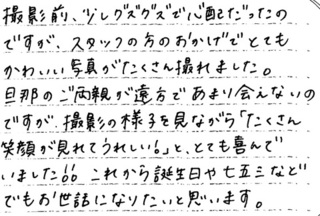 撮影前、少しグズグズで心配だったの
ですが、スタッフの方のおかげでとても
かわいい写真がたくさん撮れました。
旦那のご両親が遠方であまり会えないの
ですが、撮影の様子を見ながら「たくさん
笑顔が見れてうれしい!」と、とても喜んで
いました!! これから誕生日や七五三など
でもお世話になりたいと思います。